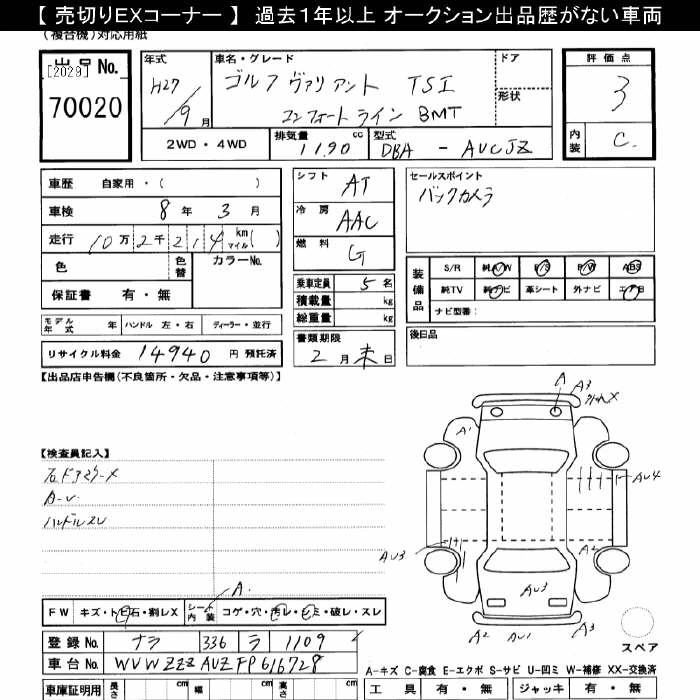 【 売切りEXコーナー 】 過去1年以上 オークション出品歴がない車両
(複合機)対応用紙
出品 No.
[2029]
70020
年式
H27
9月
車名・グレード
ゴルフ ヴァリアント TSI
コンフォートライン BMT
ドア
形状
評価点
3
内装
C
2WD・4WD
排気量 1190 cc
型式 DBA - AUCJZ
車歴 自家用・( )
車検 8年 3月
走行 10万2千214 km マイル( )
色
色替
カラーNo.
保証書 有・無
シフト AT
冷房 AAC
燃料 G
乗車定員 5名
積載量 kg
総重量 kg
セールスポイント
バックカメラ
装備品
S/R 純A/W P/S P/W ABS
純TV 純ナビ 革シート 外ナビ エアB
ナビ型番:
モデル年式 年 ハンドル 左・右 ディーラー・並行
リサイクル料金 14940 円 預託済
書類期限
2月末日
後日品
【出品店申告欄(不良箇所・欠品・注意事項等)】
【検査員記入】
右ドアミラーX
A-U
ハンドルスレ
A
A3
A1
AU4
AU3
A2
AU3
A2
AU1
A3
スペア
FW キズ・トビ石・割レX
シート内装 コゲ・穴・汚レ・シミ・破レ・スレ
A.
登録 No. ナラ 336 ラ 1109
車台 No. WVWZZZAUZFP616728
A-キズ C-腐食 E-エクボ S-サビ U-凹ミ W-補修 XX-交換済
車庫証明用 長さ cm 幅 cm 高さ cm
工具 有・無 ジャッキ 有・無